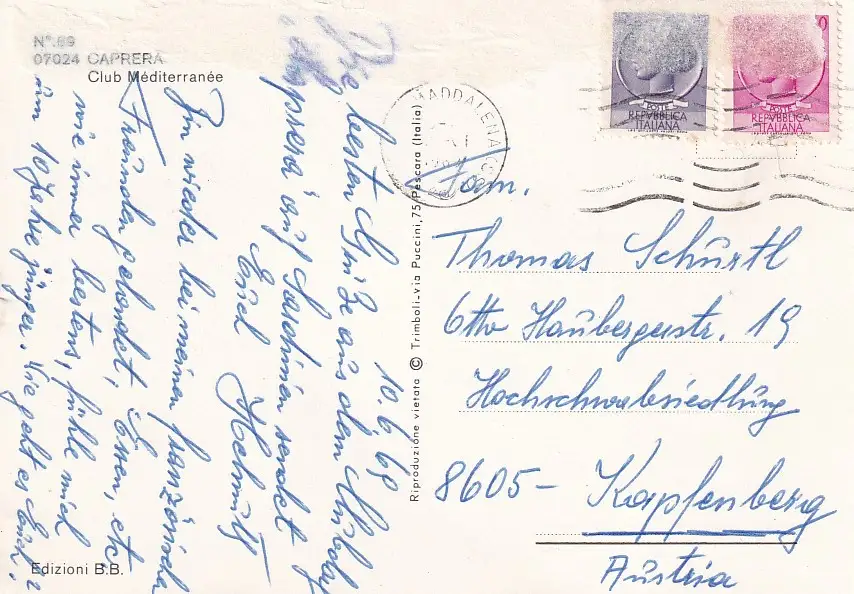 N°.69
07024 CAPRERA
Club Méditerranée
10.6.69
Die besten Grüße aus dem Urlaub
Caprera auf Sardinien sendet
Euch
Helmut
Bin wieder bei meinen französischen
Freunden gelandet, Essen, etc
wie immer bestens, fühle mich
um 10 Jahre jünger. Wie geht es Euch?
Edizioni B.B.
Riproduzione vietata © Trimboli-via Puccini,75/Pescara (Italia)
MADDALENA
POSTE
REPVBBLICA
ITALIANA
POSTE
REPVBBLICA
ITALIANA
Fam.
Thomas Schürtl
Otto Haubergerstr. 19
Hochschwabsiedlung
8605- Kapfenberg
Austria